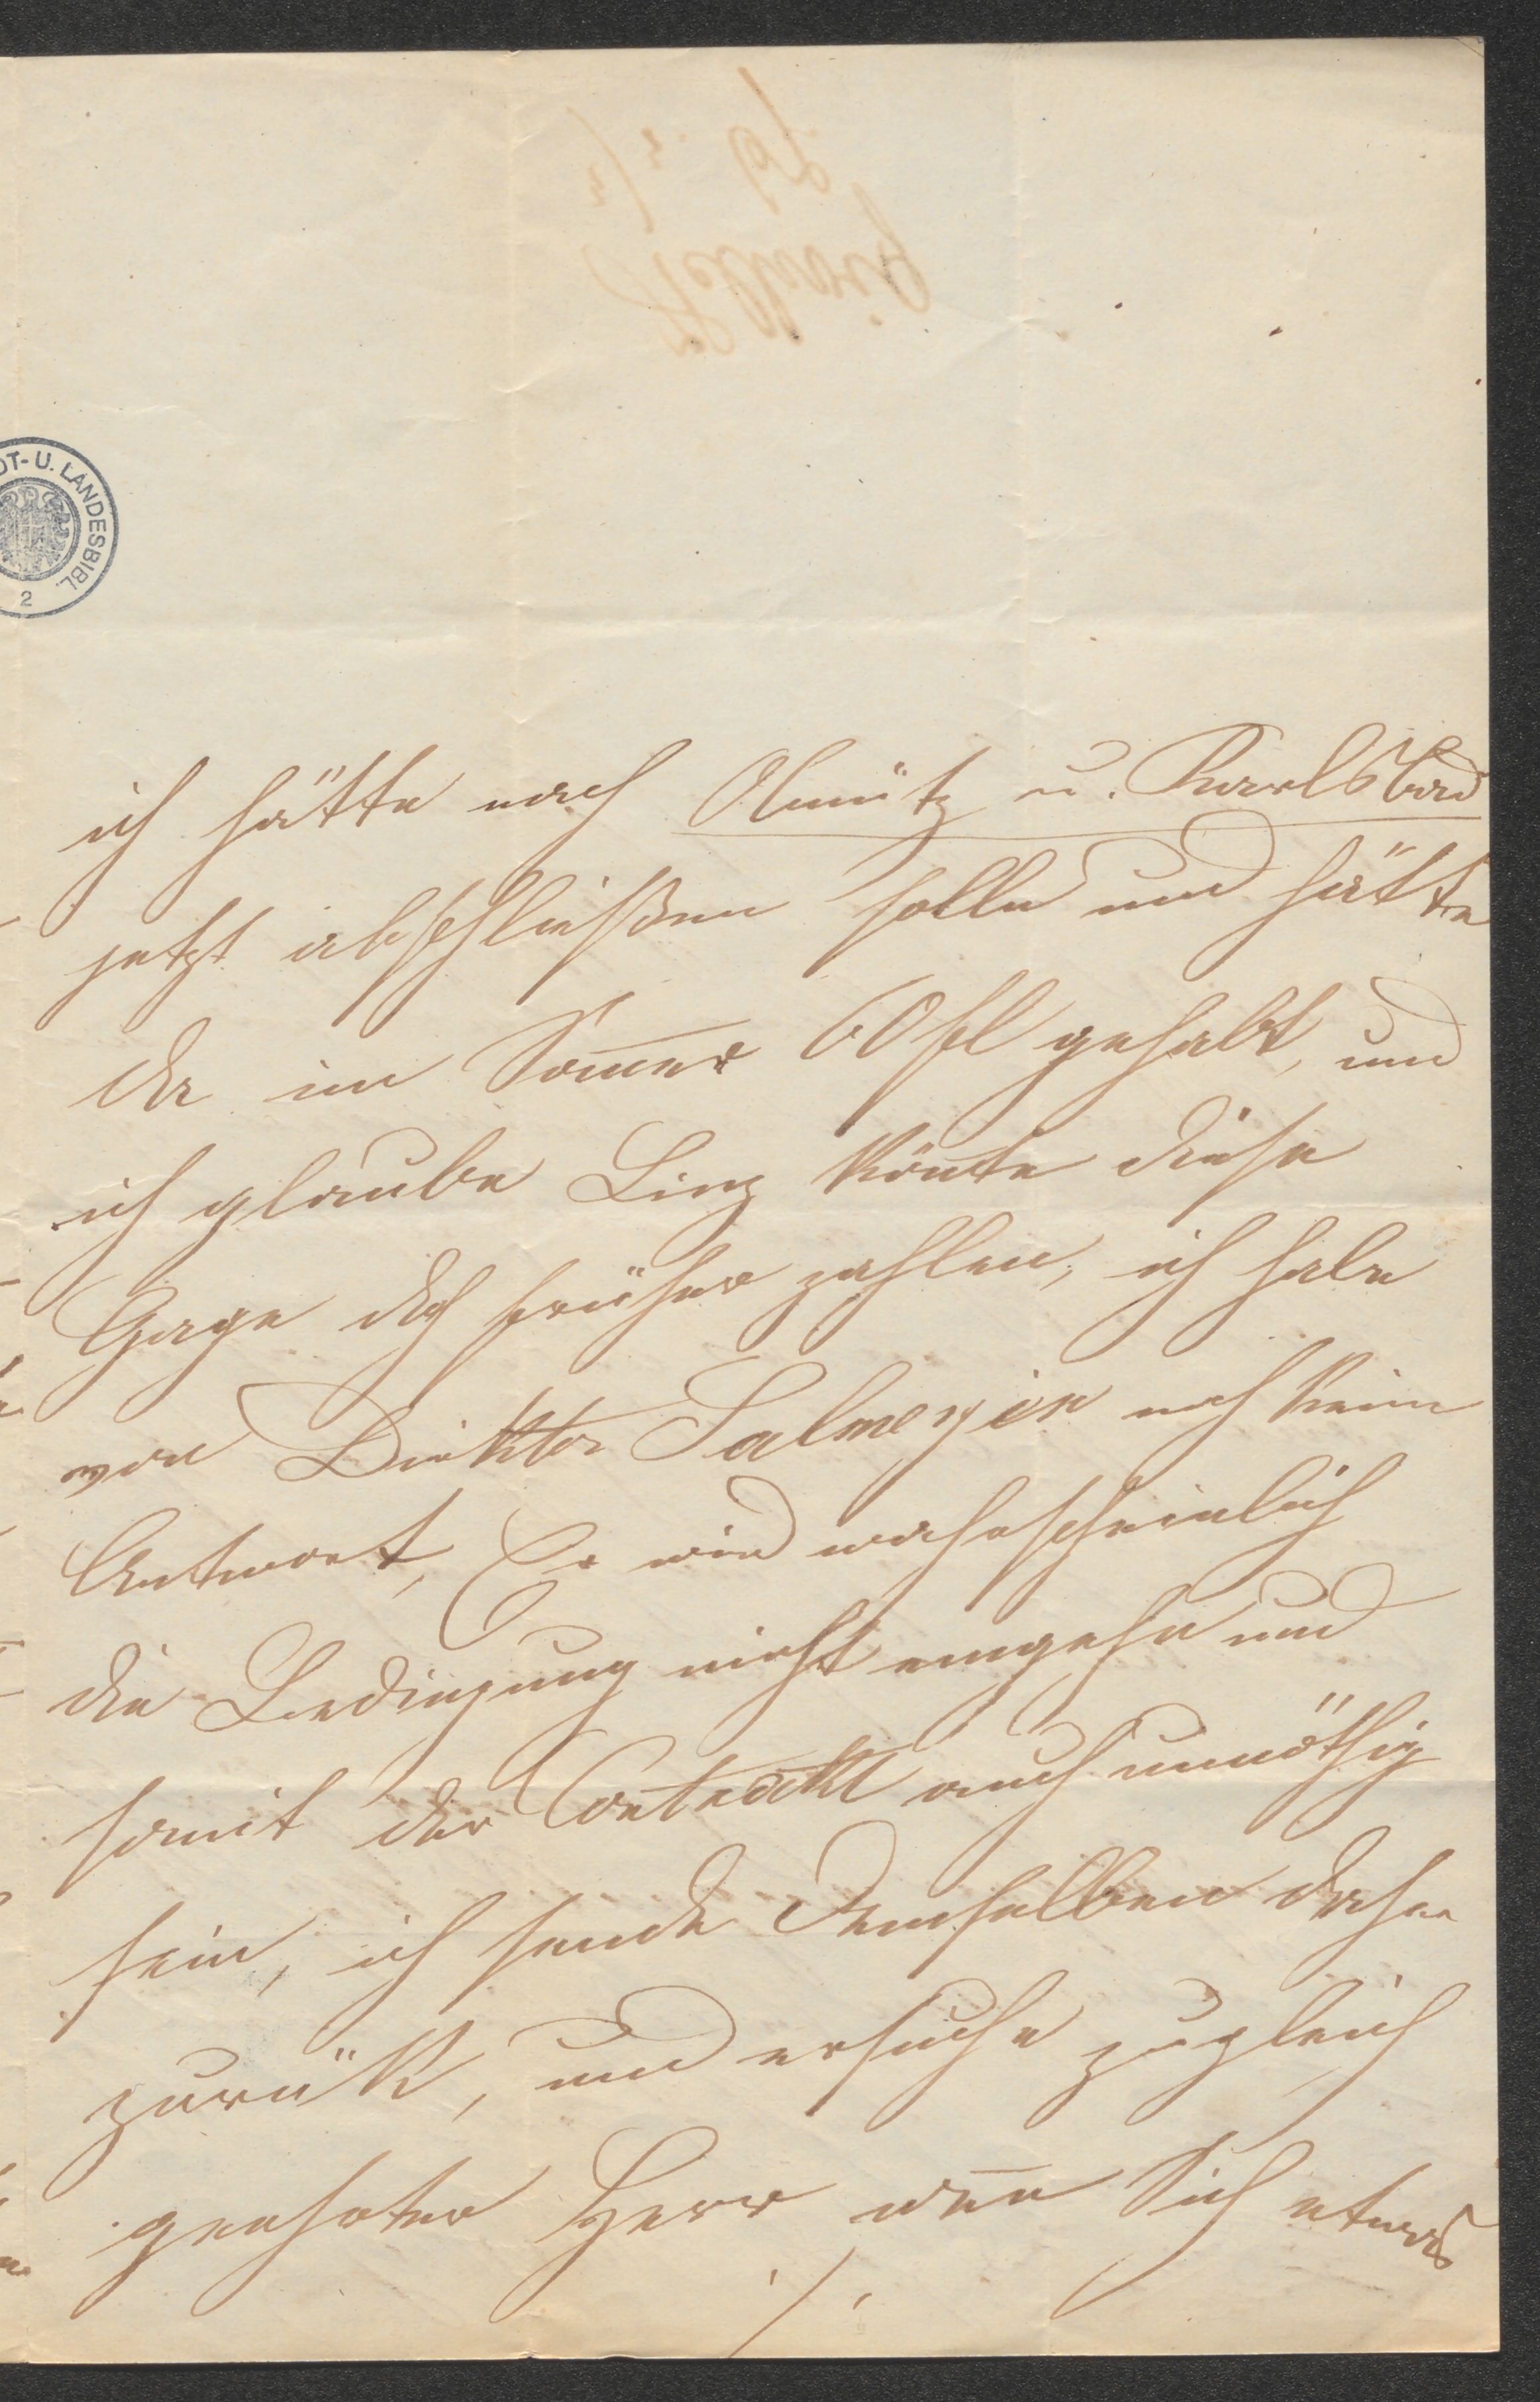 DT- U. LANDESBIBL.
2
ich hätte nach Olmütz u. Karlsbad
jetzt abschließen solln und hätte
da im Som̅er 60 fl gehabt, und
ich glaube Linz kön̅te diese
Gage doch früher zahlen, ich habe
von Direktor Salmeyer noch keine
Antwort, Er wird wahrscheinlich
die Bedingung nicht eingehn und
somit der Contrakt auch unnöthig
sein, ich sende Demselben daher
zurük, und ersuche zugleich
geehrter Herr wen̅ Sich etwas
./.